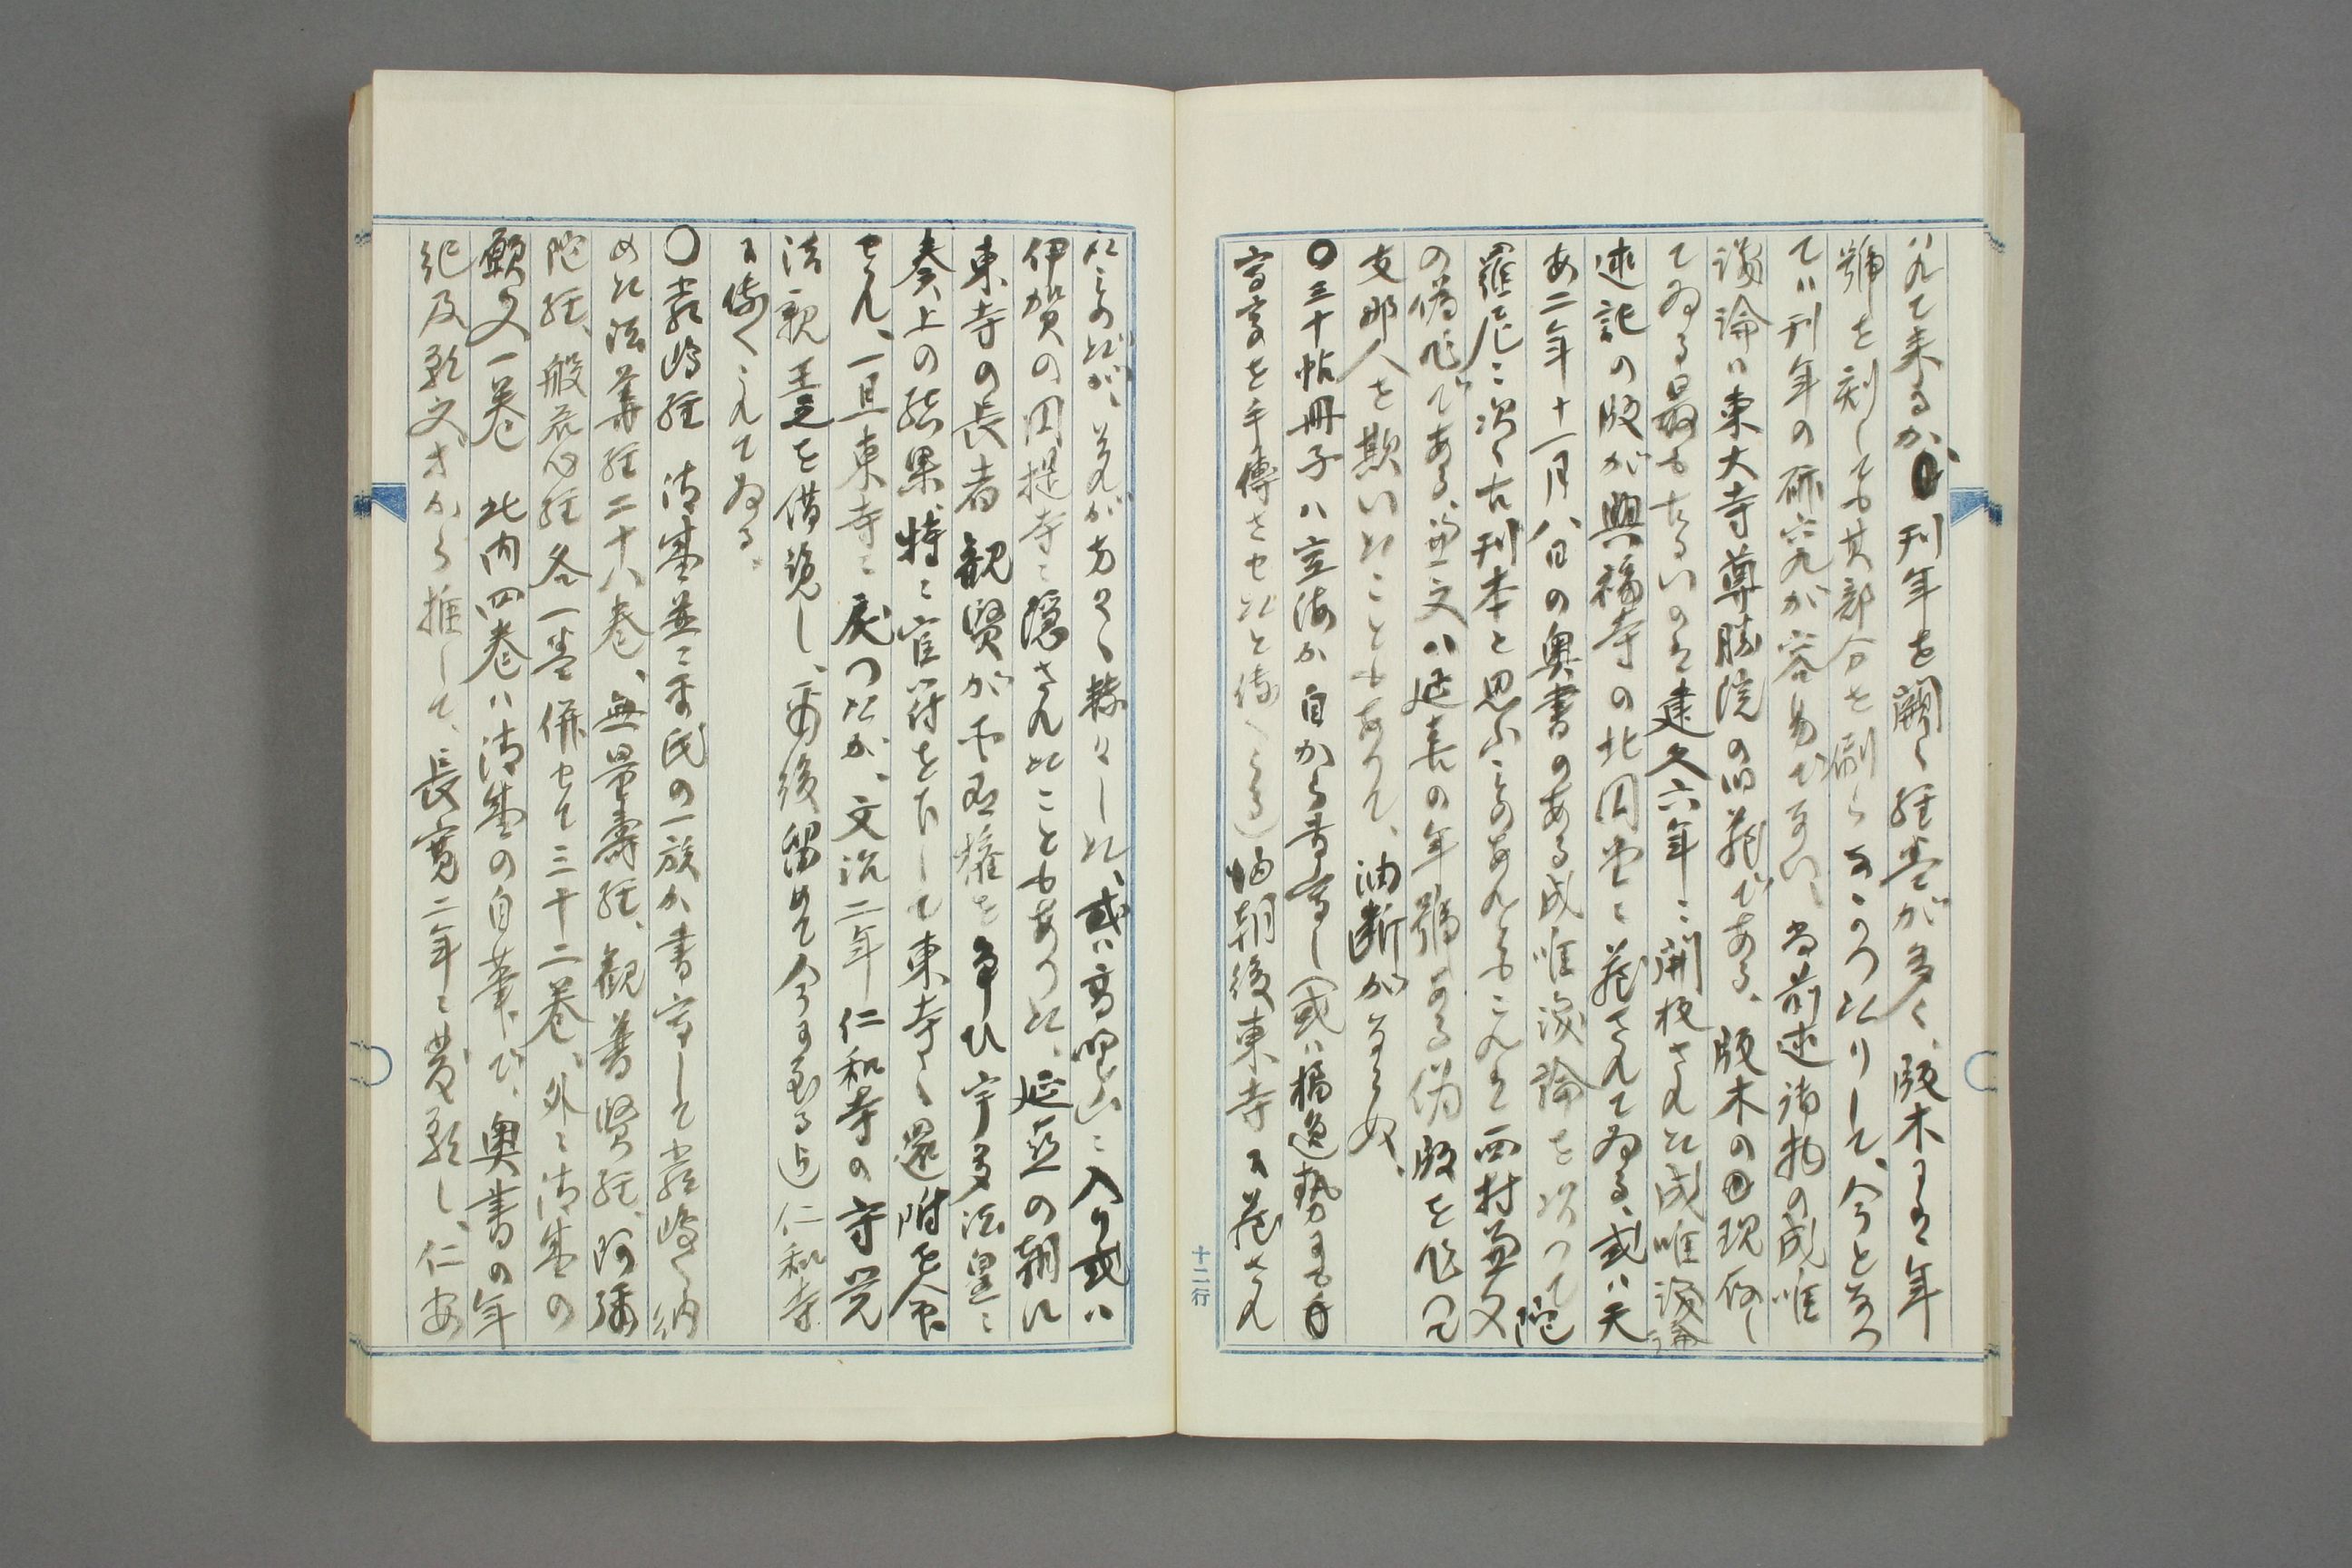 れて来るが、刊年を闕く経巻が多く、版木には年
號を刻しても其部分を刷らなかつたりして、今となつ
ては刊年の研究が容易でない、尚前述諸物の成唯
識論は東大寺尊勝院の旧蔵である、版木の現存し
てゐる最も古るいのは建久六年に開板された成唯識論
述記の版が興福寺の北円堂に蔵されてゐる、或は天
あ二年十一月八日の奥書のある成唯識論を以つて陀
羅尼に次ぐ古刊本と思ふものあれどもこれは西村兼文
の偽作である、兼文は延喜の年號ある偽版を作つて
支那人を欺いたこともあつて、油断がならぬ、
〇三十帖冊子は空海が自から書写し(或は橘逸勢も
書写を手傳させたと傳へらる)帰朝後東寺に蔵され
たものだが、それが方々轉々した、或は高野山に入り或は
伊賀の国提寺に隠されたこともあつた、延喜の朝に
東寺の長者観賢が所有権を争ひ宇多法皇に
奏上の結果、特に官符を下して東寺へ還附を命
せられ、一旦東寺に戻つたが、文治二年仁和寺の守覚
法親王之を借覧し、其後留めて今に至る迄仁和寺
に傳へられてゐる。
〇厳島経 清盛並に平氏の一族が書写して厳島へ納
めた法華経二十八巻、無量壽経、観普賢経、阿彌
陀経、般若心経各一巻併せて三十二巻、外に清盛の
願文一巻 此内四巻は清盛の自筆で、奥書の年
紀及願文等から推して、長寛二年に発願し、仁安